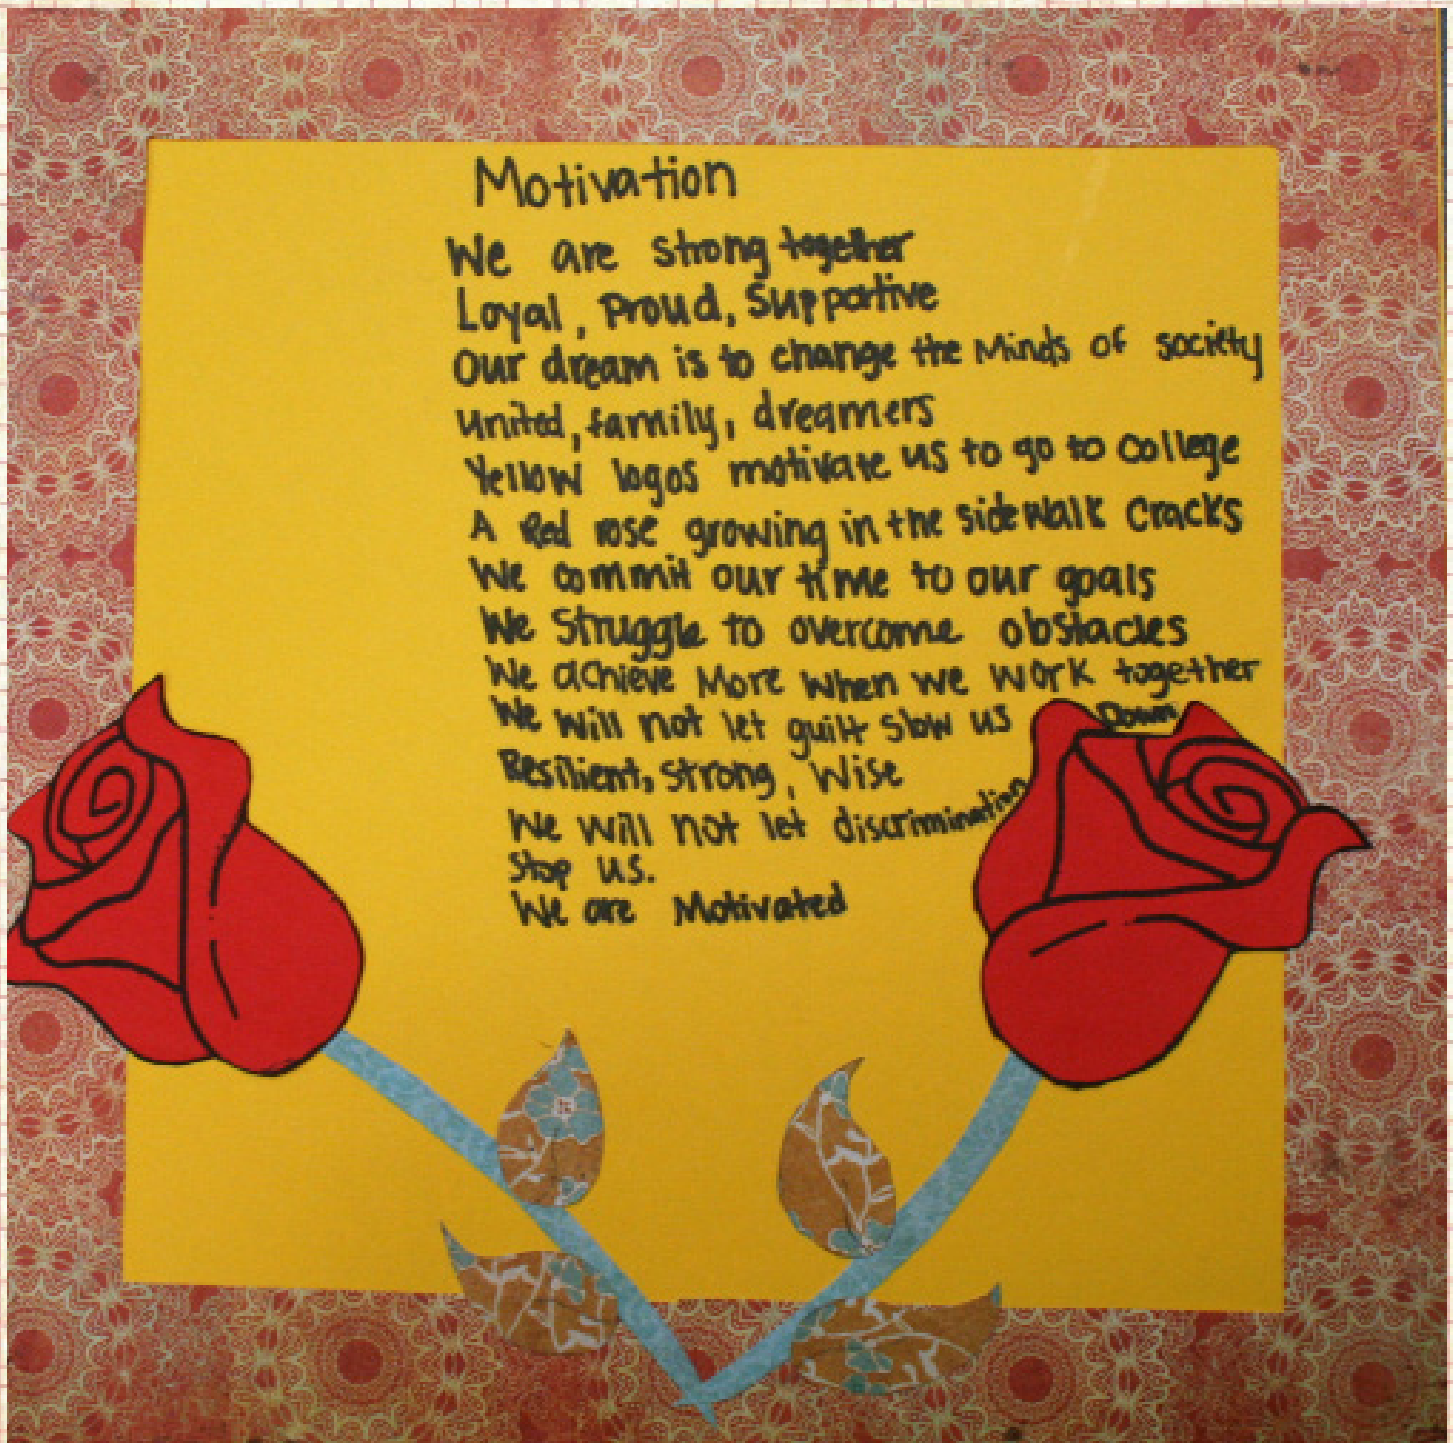 Motivation
We are strong together
Loyal, Proud, Supportive
Our dream is to change the Minds of society
United, family, dreamers
Yellow logos motivate us to go to college
A Red rose growing in the sidewalk cracks
We commit our time to our goals
We struggle to overcome obstacles
We achieve More when we work together
We will not let guilt slow us Down
Resilient, strong, Wise
We will not let discrimination
stop us.
We are Motivated